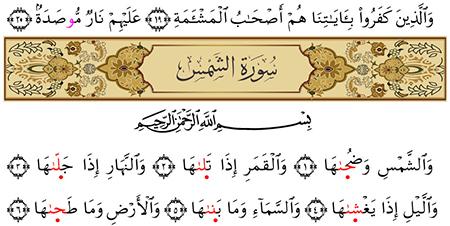 وَٱلَّذِينَ كَفَرُواْ بِـَٔايَٰتِنَا هُمۡ أَصۡحَٰبُ ٱلۡمَشۡـَٔمَةِ ﴿١٩﴾ عَلَيۡهِمۡ نَارٞ مُّوصَدَةُۢ ﴿٢٠﴾
سُورَةُ الشَّمْسِ
بِسْمِ ٱللَّهِ ٱلرَّحْمَٰنِ ٱلرَّحِيمِ
وَٱلشَّمۡسِ وَضُحَىٰهَا ﴿١﴾ وَٱلۡقَمَرِ إِذَا تَلَىٰهَا ﴿٢﴾ وَٱلنَّهَارِ إِذَا جَلَّىٰهَا ﴿٣﴾
وَٱلَّيۡلِ إِذَا يَغۡشَىٰهَا ﴿٤﴾ وَٱلسَّمَآءِ وَمَا بَنَىٰهَا ﴿٥﴾ وَٱلۡأَرۡضِ وَمَا طَحَىٰهَا ﴿٦﴾